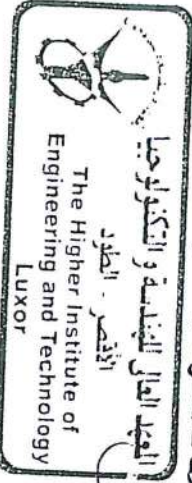 المعهد العالي للهندسة و التكنولوجيا
الأقصر - الطود
The Higher Institute of
Engineering and Technology
Luxor